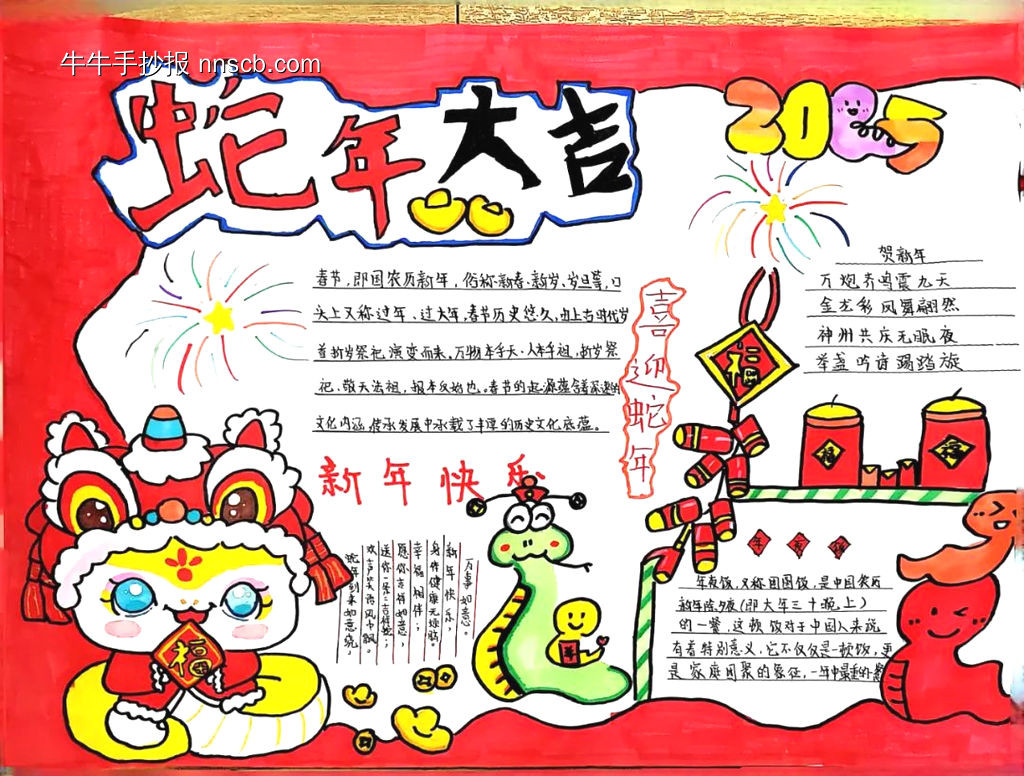 牛牛手抄报 nnscb.com
蛇年大吉
2025
春节,即国农历新年,俗称新春、新岁、岁旦等,口
头上又称过年、过大年,春节历史悠久,由上古时代岁
首祈岁祭祀演变而来。万物本乎天、人本乎祖,祈岁祭
祀、敬天法祖,报本反始也。春节的起源蕴含着深邃的
文化内涵,传承发展中承载了丰厚的历史文化底蕴。
喜迎蛇年
贺新年
万炮齐鸣震九天
金龙彩凤舞翩然
神州共庆无眠夜
举盏吟诗踢踏旋
福
福
福
新年快乐
万事如意。
新年快乐,
身体健康无烦恼。
幸福相伴;
愿你吉祥如意,
送你一条吉祥蛇;
欢声笑语风中飘。
蛇年到来如意绕
福
年夜饭
年夜饭,又称团圆饭,是中国农历
新年除夕夜(即大年三十晚上)
的一餐,这顿饭对于中国人来说
有着特别意义,它不仅仅是一顿饭,更
是家庭团聚的象征,一年中最重的